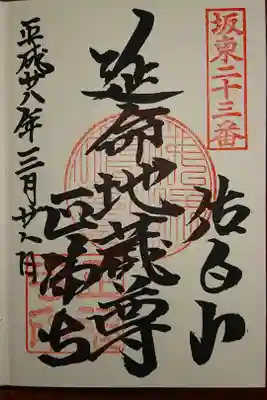 坂東二十三番
佐白山
延命地蔵尊
正福寺
平成廿八年三月廿六日